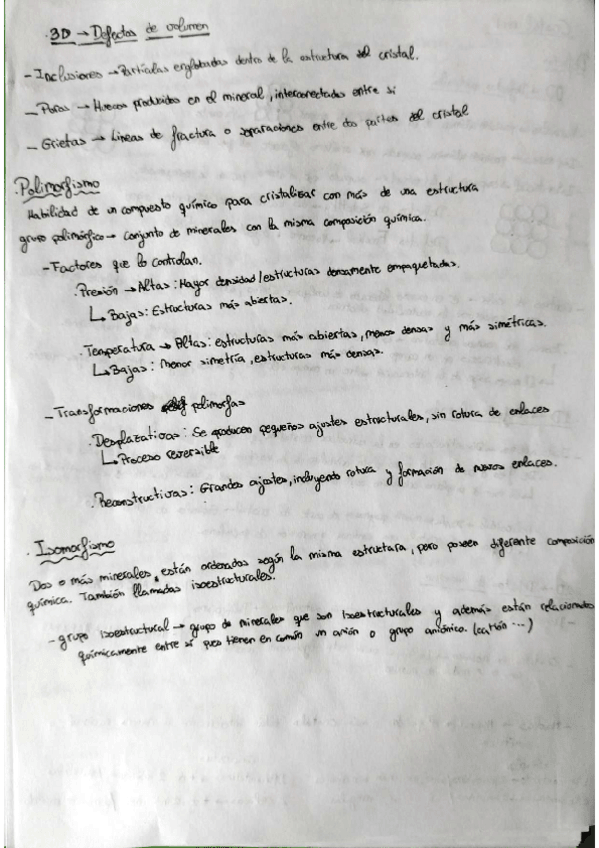 · 3D → Defectos de volumen
- Inclusiones → Partículas englobadas dentro de la estructura del cristal.
- Poros → Huecos producidos en el mineral, interconectados entre sí
- Grietas → Líneas de fractura o separaciones entre dos partes del cristal
· Polimorfismo
Habilidad de un compuesto químico para cristalizar con más de una estructura
grupo polimórfico → conjunto de minerales con la misma composición química.
- Factores que lo controlan.
· Presión → Altas: Mayor densidad/estructuras densamente empaquetadas.
↳ Bajas: Estructuras más abiertas.
· Temperatura → Altas: estructuras más abiertas, menos densas y más simétricas.
↳ Bajas: Menor simetría, estructuras más densas.
- Transformaciones polimorfas
· Desplazativas: Se producen pequeños ajustes estructurales, sin rotura de enlaces
↳ Proceso reversible
· Reconstructivas: Grandes ajustes, incluyendo rotura y formación de nuevos enlaces.
· Isomorfismo
Dos o más minerales están ordenados según la misma estructura, pero poseen diferente composición
química. También llamadas isoestructurales.
- grupo isoestructural → grupo de minerales que son isoestructurales y además están relacionados
químicamente entre sí pues tienen en común un anión o grupo aniónico. (catión ...)